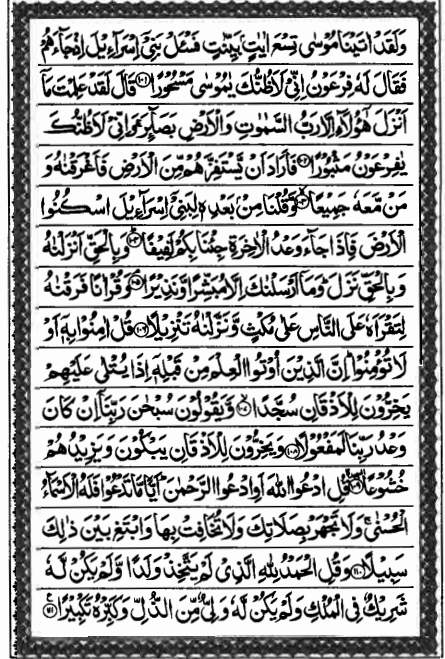 وَلَقَدْ اٰتَیْنَا مُوْسٰی تِسْعَ اٰیٰتٍۭ بَیِّنٰتٍ فَسْـَٔلْ بَنِیْۤ اِسْرَآءِیْلَ اِذْ جَآءَهُمْ
فَقَالَ لَهٗ فِرْعَوْنُ اِنِّیْ لَاَظُنُّكَ یٰمُوْسٰی مَسْحُوْرًا ۝۱۰۱ قَالَ لَقَدْ عَلِمْتَ مَاۤ
اَنْزَلَ هٰۤؤُلَآءِ اِلَّا رَبُّ السَّمٰوٰتِ وَالْاَرْضِ بَصَآىِٕرَ ۚ وَاِنِّیْ لَاَظُنُّكَ
یٰفِرْعَوْنُ مَثْبُوْرًا ۝۱۰۲ فَاَرَادَ اَنْ یَّسْتَفِزَّهُمْ مِّنَ الْاَرْضِ فَاَغْرَقْنٰهُ وَ
مَنْ مَّعَهٗ جَمِیْعًا ۝۱۰۳ وَّقُلْنَا مِنْۢ بَعْدِهٖ لِبَنِیْۤ اِسْرَآءِیْلَ اسْكُنُوا
الْاَرْضَ فَاِذَا جَآءَ وَعْدُ الْاٰخِرَةِ جِئْنَا بِكُمْ لَفِیْفًا ۝۱۰۴ وَبِالْحَقِّ اَنْزَلْنٰهُ
وَبِالْحَقِّ نَزَلَ ؕ وَمَاۤ اَرْسَلْنٰكَ اِلَّا مُبَشِّرًا وَّنَذِیْرًا ۝۱۰۵ وَقُرْاٰنًا فَرَقْنٰهُ
لِتَقْرَاَهٗ عَلَی النَّاسِ عَلٰی مُكْثٍ وَّنَزَّلْنٰهُ تَنْزِیْلًا ۝۱۰۶ قُلْ اٰمِنُوْا بِهٖۤ اَوْ
لَا تُؤْمِنُوْا ؕ اِنَّ الَّذِیْنَ اُوْتُوا الْعِلْمَ مِنْ قَبْلِهٖۤ اِذَا یُتْلٰی عَلَیْهِمْ
یَخِرُّوْنَ لِلْاَذْقَانِ سُجَّدًا ۝۱۰۷ وَّیَقُوْلُوْنَ سُبْحٰنَ رَبِّنَاۤ اِنْ كَانَ
وَعْدُ رَبِّنَا لَمَفْعُوْلًا ۝۱۰۸ وَیَخِرُّوْنَ لِلْاَذْقَانِ یَبْكُوْنَ وَیَزِیْدُهُمْ
خُشُوْعًا ۝۱۰۹ قُلِ ادْعُوا اللّٰهَ اَوِ ادْعُوا الرَّحْمٰنَ ؕ اَیًّا مَّا تَدْعُوْا فَلَهُ الْاَسْمَآءُ
الْحُسْنٰی ۚ وَلَا تَجْهَرْ بِصَلَاتِكَ وَلَا تُخَافِتْ بِهَا وَابْتَغِ بَیْنَ ذٰلِكَ
سَبِیْلًا ۝۱۱۰ وَقُلِ الْحَمْدُ لِلّٰهِ الَّذِیْ لَمْ یَتَّخِذْ وَلَدًا وَّلَمْ یَكُنْ لَّهٗ
شَرِیْكٌ فِی الْمُلْكِ وَلَمْ یَكُنْ لَّهٗ وَلِیٌّ مِّنَ الذُّلِّ وَكَبِّرْهُ تَكْبِیْرًا ۝۱۱۱